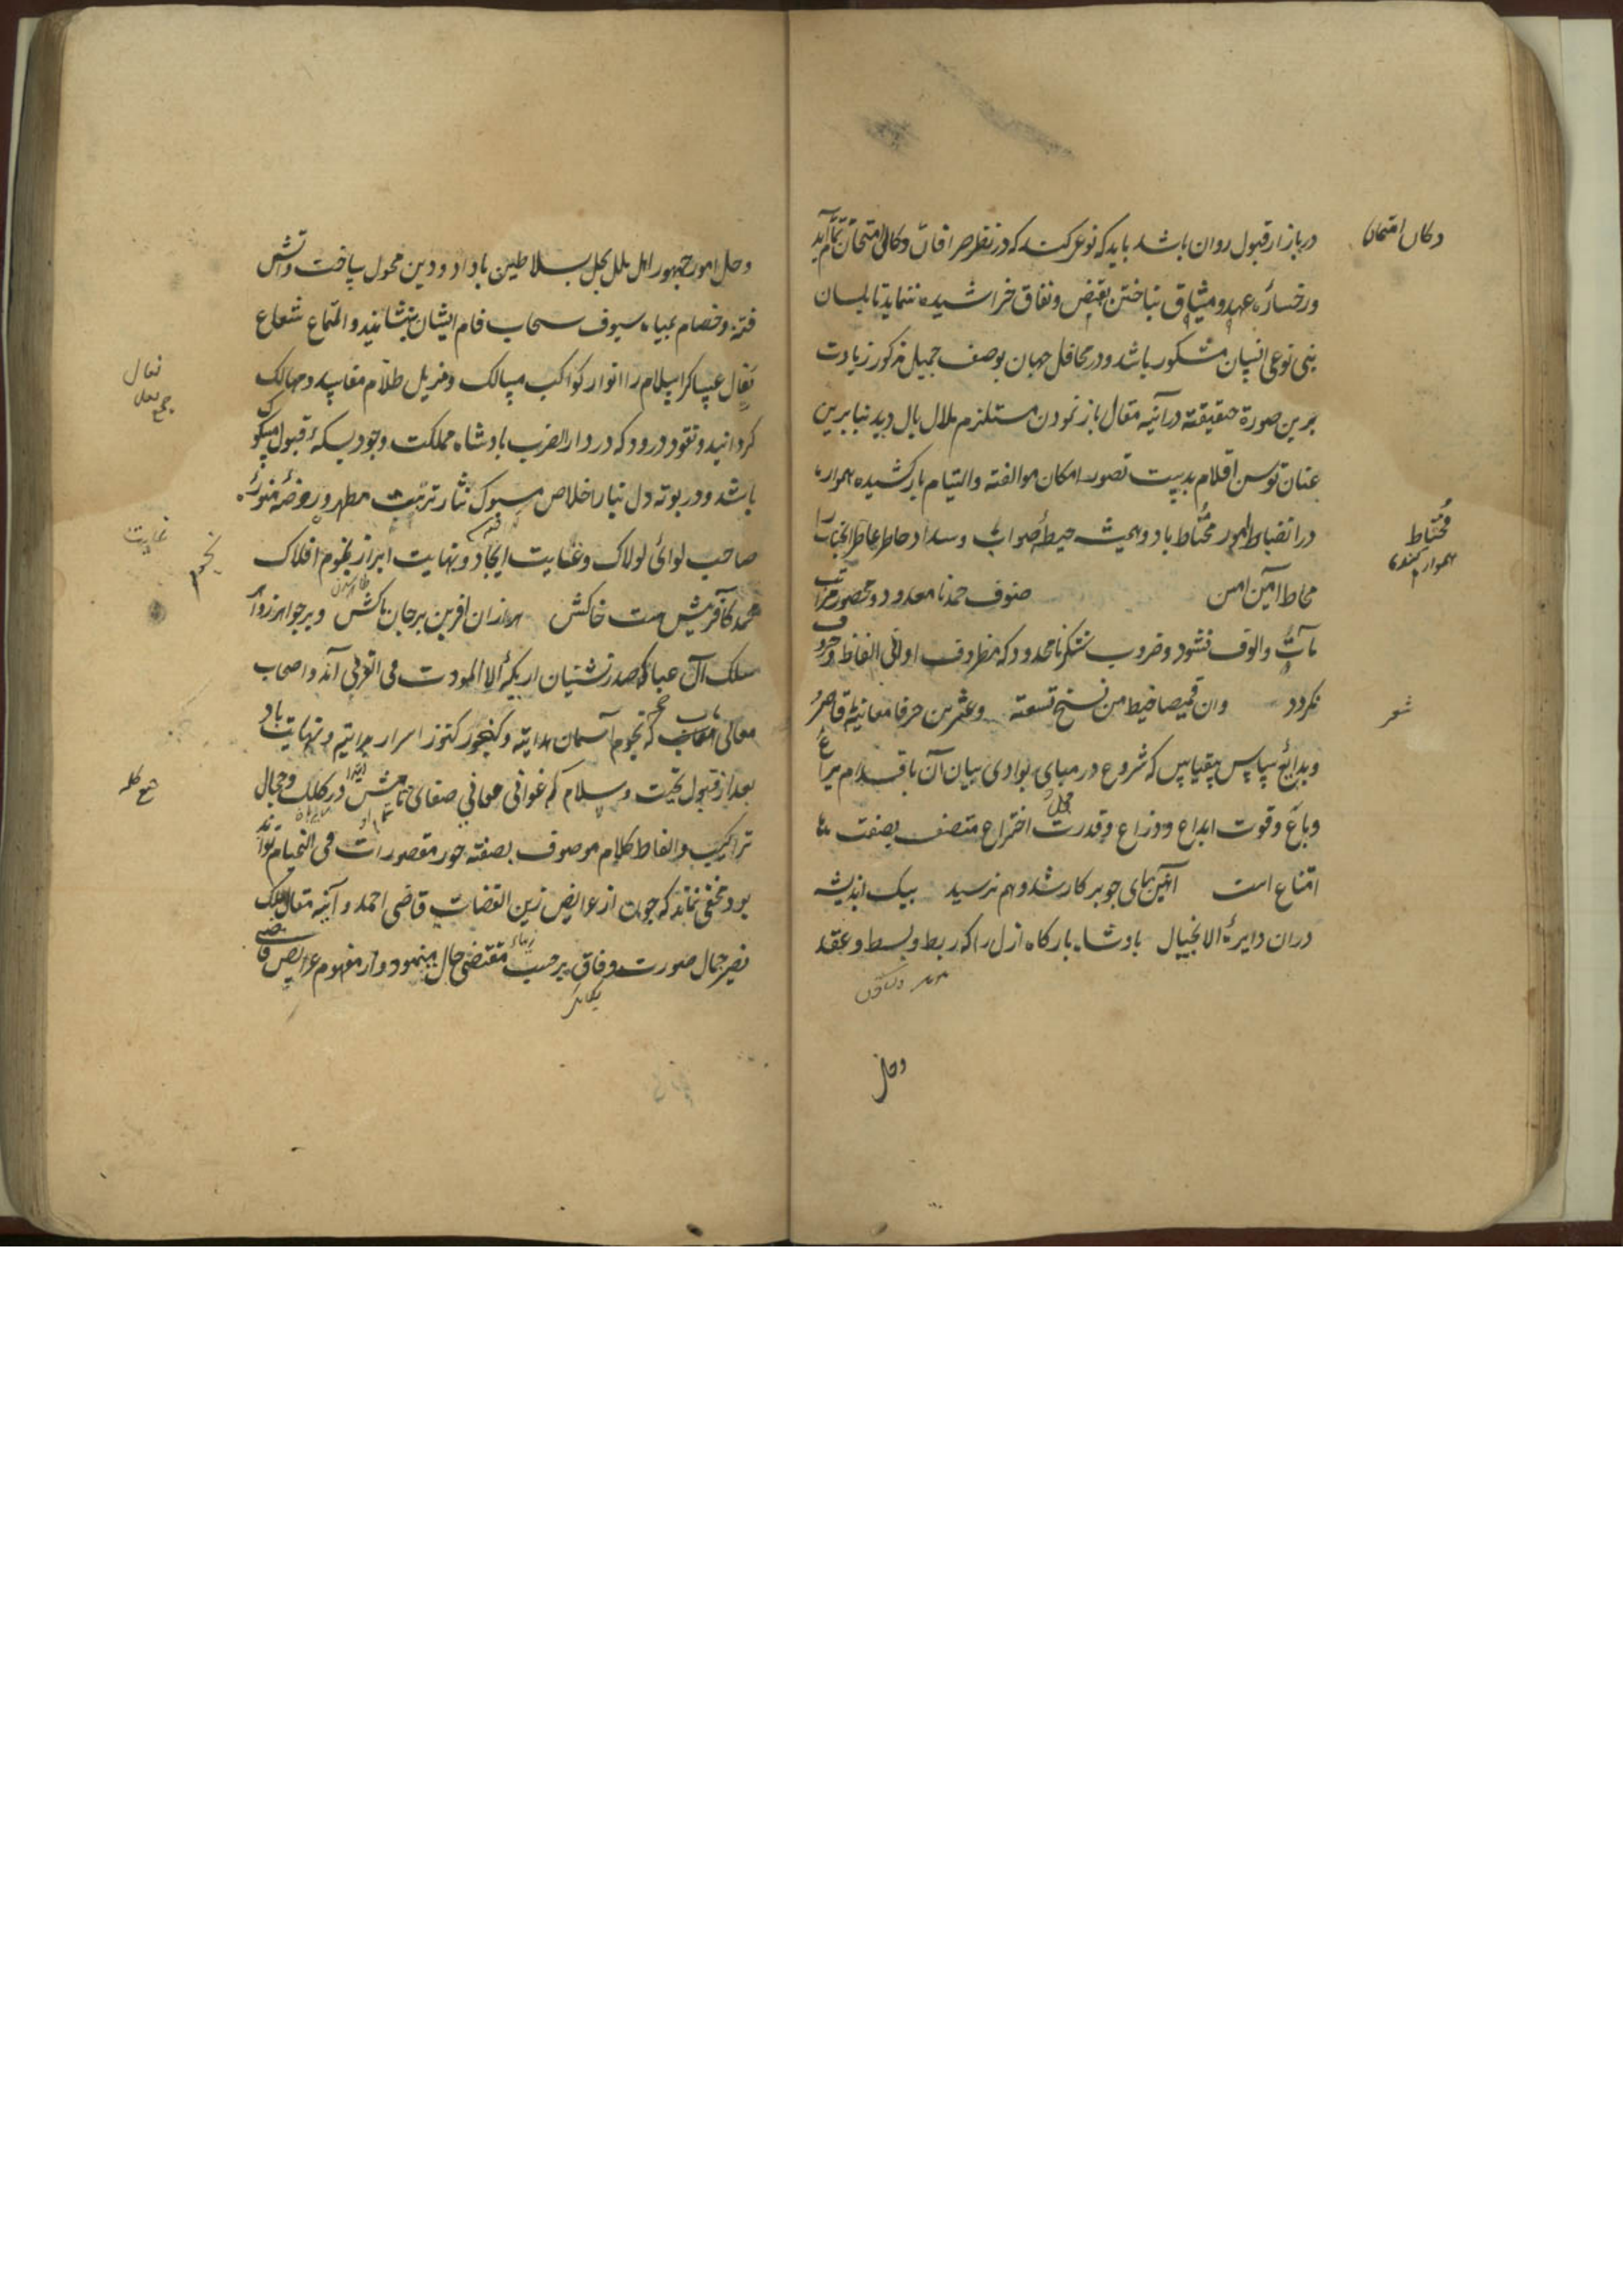 در بازار قبول روان باشد باید که نوعی کند که در نظر صرافان دکان امتحان تمام آید
دکان امتحان
و رخساره عهد و میثاق بناختن نقض و نفاق خراشیده ننماید تا بلسان
بنی نوعی انسان مشکور باشد و در محافل جهان بوصف جمیل مذکور زیادت
برین صورة حقیقته در آئینه مقال باز نمودن مستلزم ملال بال دید بنابرین
عنان توسن اقلام بدبیت تصور امکان موالفته والتیام باز کشیده همواره
در انضباط امور محتاط باد و همیشه حیطه صواب و سداد خاطر عاطر انجناب را
محتاط
محاط آمین امین صنوف حمد نامعدود و محصور مراتب
مآت والوف نشود و ضروب شکر نامحدود که مظروف اوانی الفاظ و حروف
نکردد وان قمیصا خیط من نسخ تسعته وعشرین حرفا معانیه قاصر
شعر
و بدایع سپاس بیقیاس که شروع در مبادی بوادی بیان آن باقدام یراع
و باع و قوت ابداع و وزراع و قدرت اختراع متصف بصفت
امتناع است آئین بهای جوهر کار شد و هم نرسید بیک اندیشه
دران دایره الا بخیال بادشاه بارکاه ازل را که ربط و بسط و عقد
وحل
وحل امور جمهور اهل ملل بحل سلاطین باداد و دین محول ساخت و آتش
فتنه و خصام بمیاه سیوف سحاب فام ایشان بنشانید و التماع شعاع
نعال عساکر اسلام را انوار کواکب مسالک و مزیل ظلام مفاسد و مهالک
نعال
جمع نعل
کردانید و نقود درود که در دار الضرب بادشاه مملکت وجود بسکه قبول مسکوک
باشد و در بوته دل بنار اخلاص مسبوک نثار تربت مطهر و روضه منوره
صاحب لوائ لولاک و غایت ایجاد و نهایت ابراز نجوم افلاک
غایت
نجم
محمد کافرینش هست خاکش هزاران افرین بر جان پاکش و بر جواهر زواهر
سلک آل عبا که صدرنشینان اریکه الا المودت فی القربی آند و اصحاب
معالی که نجوم آسمان هدایته و کنجور کنوز اسرار بدایتیم و نهایت باد
بعد از قبول تحیت و سلام که غوانی معانی صفای در کلل و حجال
جمع کله
تراکیب و الفاظ کلام موصوف بصفته حور مقصورات فی الخیام تواند
بود مخفی نماند که چون از عرایض زین القضات قاضی احمد و آئینه مقال ملک
نصیر جمال صورت وفاق بر حسب مقتضی حال مینمود و از مفهوم عرایض قاضی